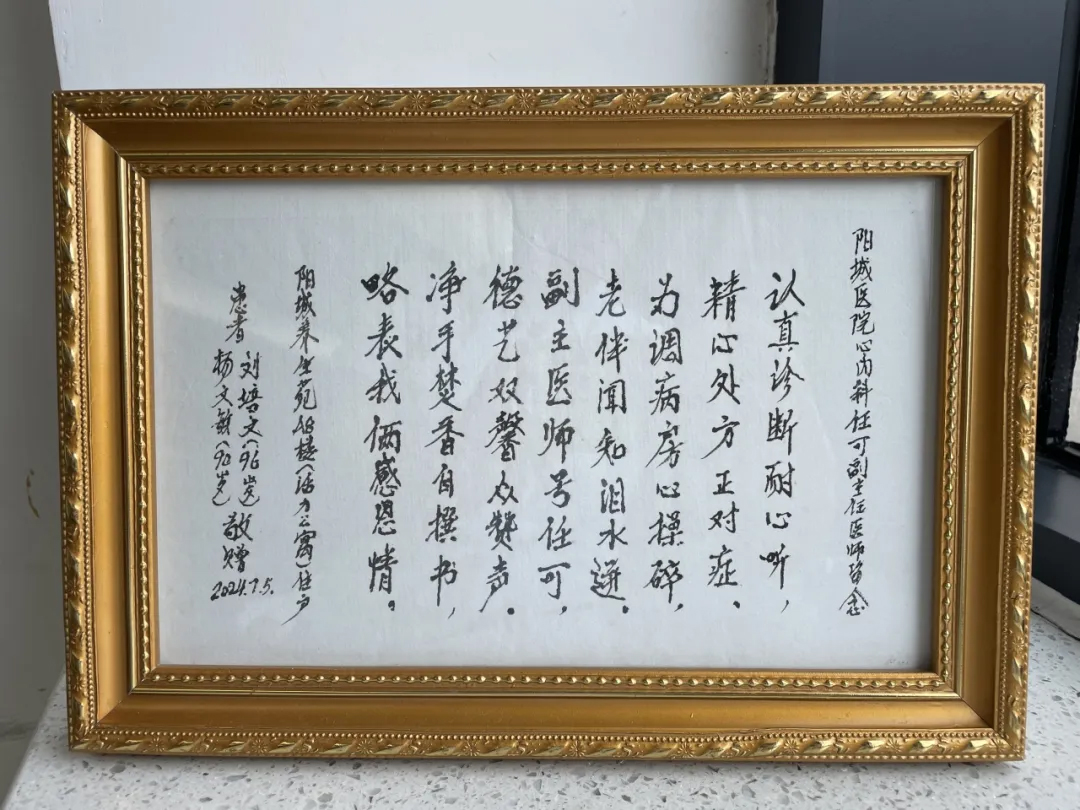 阳城医院心内科任可副主任医师留念
认真诊断耐心听，
精心处方正对症、
为调病房心操碎，
老伴闻知泪水迸。
副主医师号任可，
德艺双馨众赞声。
净手焚香自撰书，
略表我俩感恩情。
阳城养生苑 楼(活力公寓)住户
患者 刘培文(96岁)
杨文敏(90岁) 敬赠
2024.7.5.